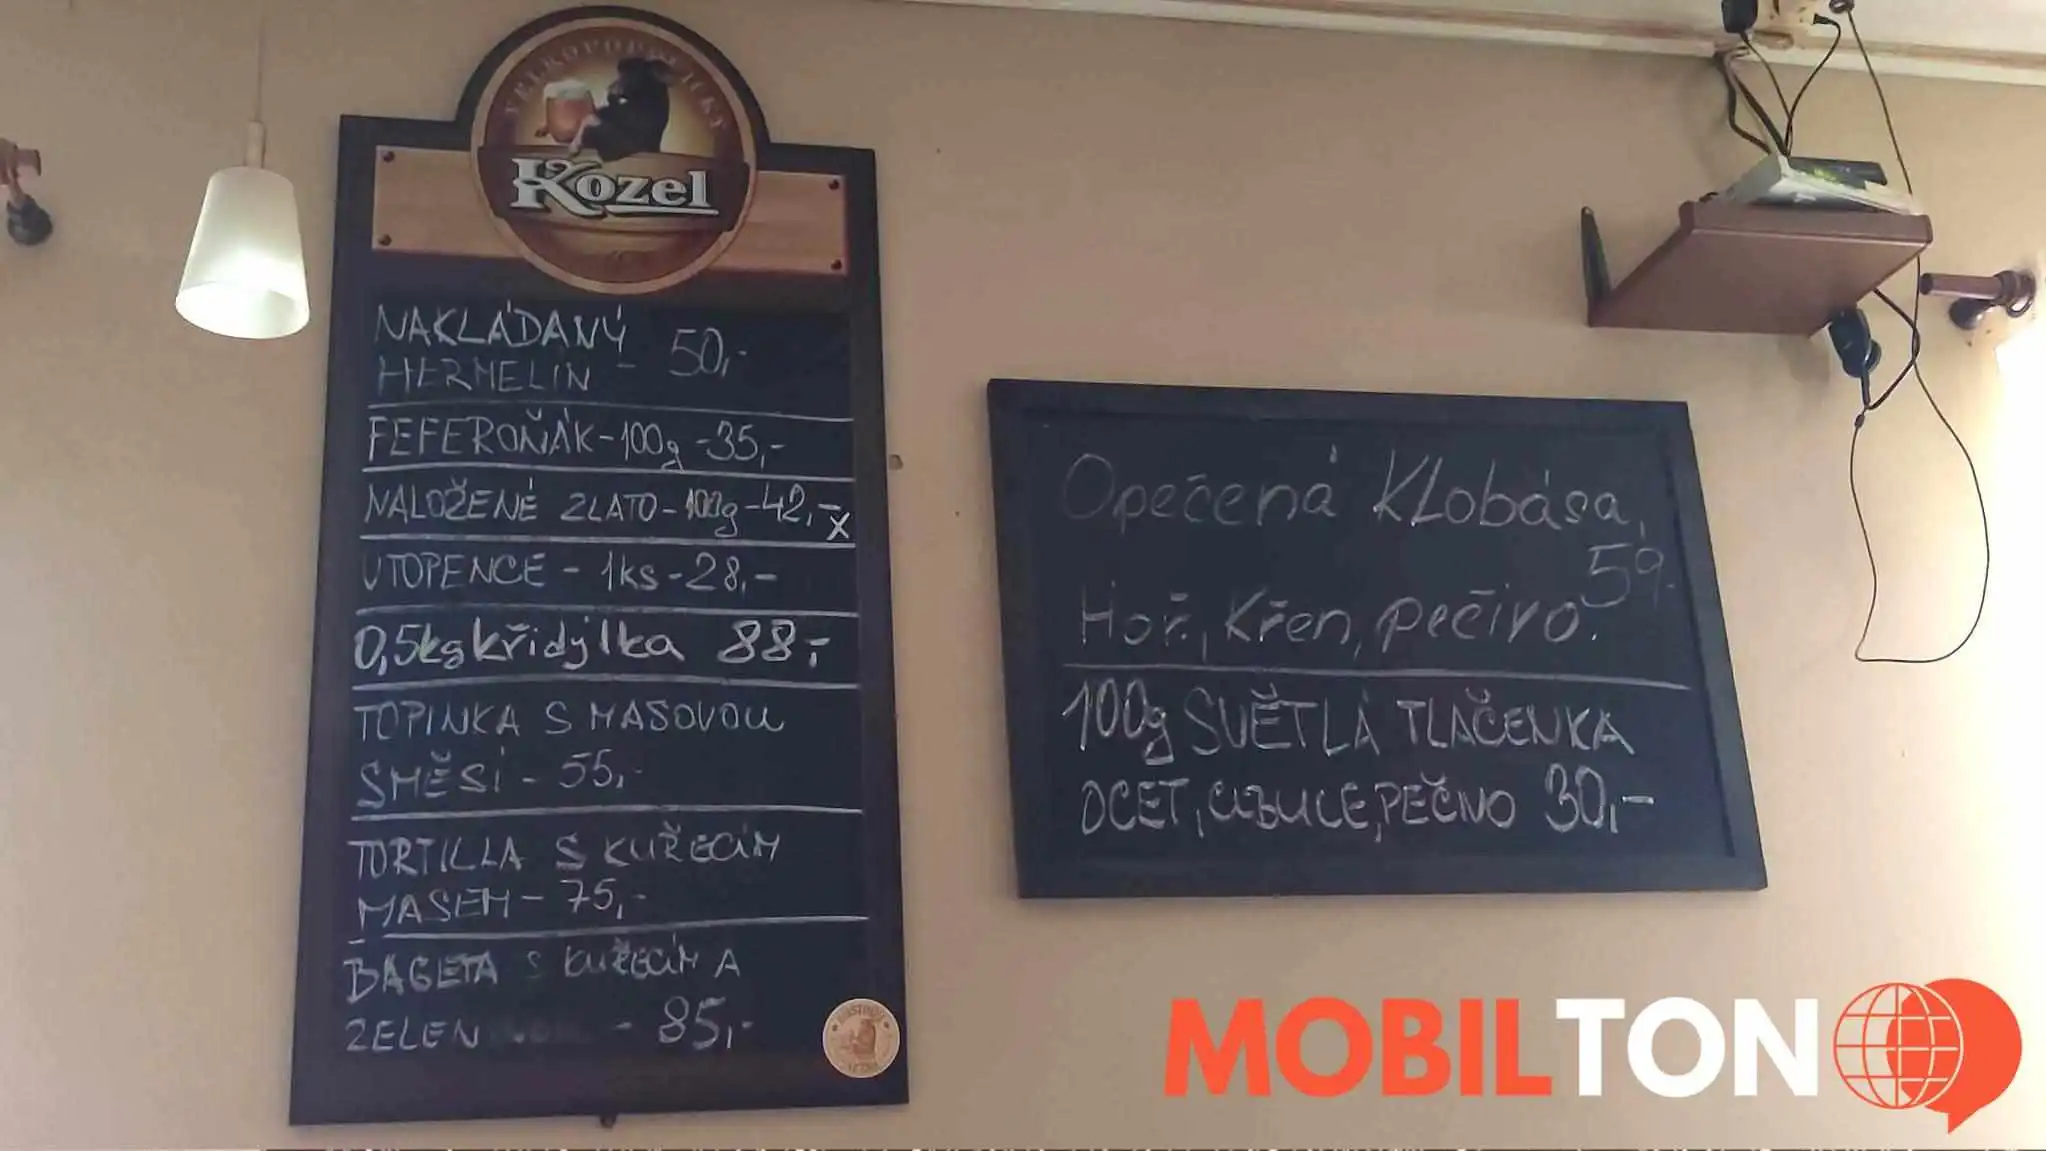 VELKOPOPOVICKÝ
Kozel
NAKLÁDANÝ
HERMELÍN - 50,-
FEFEROŇÁK-100g-35,-
NALOŽENÉ ZLATO-100g-42,-x
UTOPENCE - 1ks-28,-
0,5kg křidýlka 88,-
TOPINKA S MASOVOU
SMĚSÍ - 55,-
TORTILLA S KUŘECÍM
MASEM - 75,-
BAGETA S KUŘECÍM A
ZELEN - 85,-
Opečená Klobása,
59,-
Hoř., Křen, pečivo.
100g SVĚTLÁ TLAČENKA
OCET, CIBULE, PEČIVO 30,-
MOBILTON